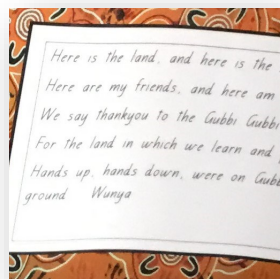 Here is the land, and here is the
Here are my friends, and here am
We say thankyou to the Gubbi Gubbi
For the land in which we learn and
Hands up, hands down, were on Gubb
ground Wunya